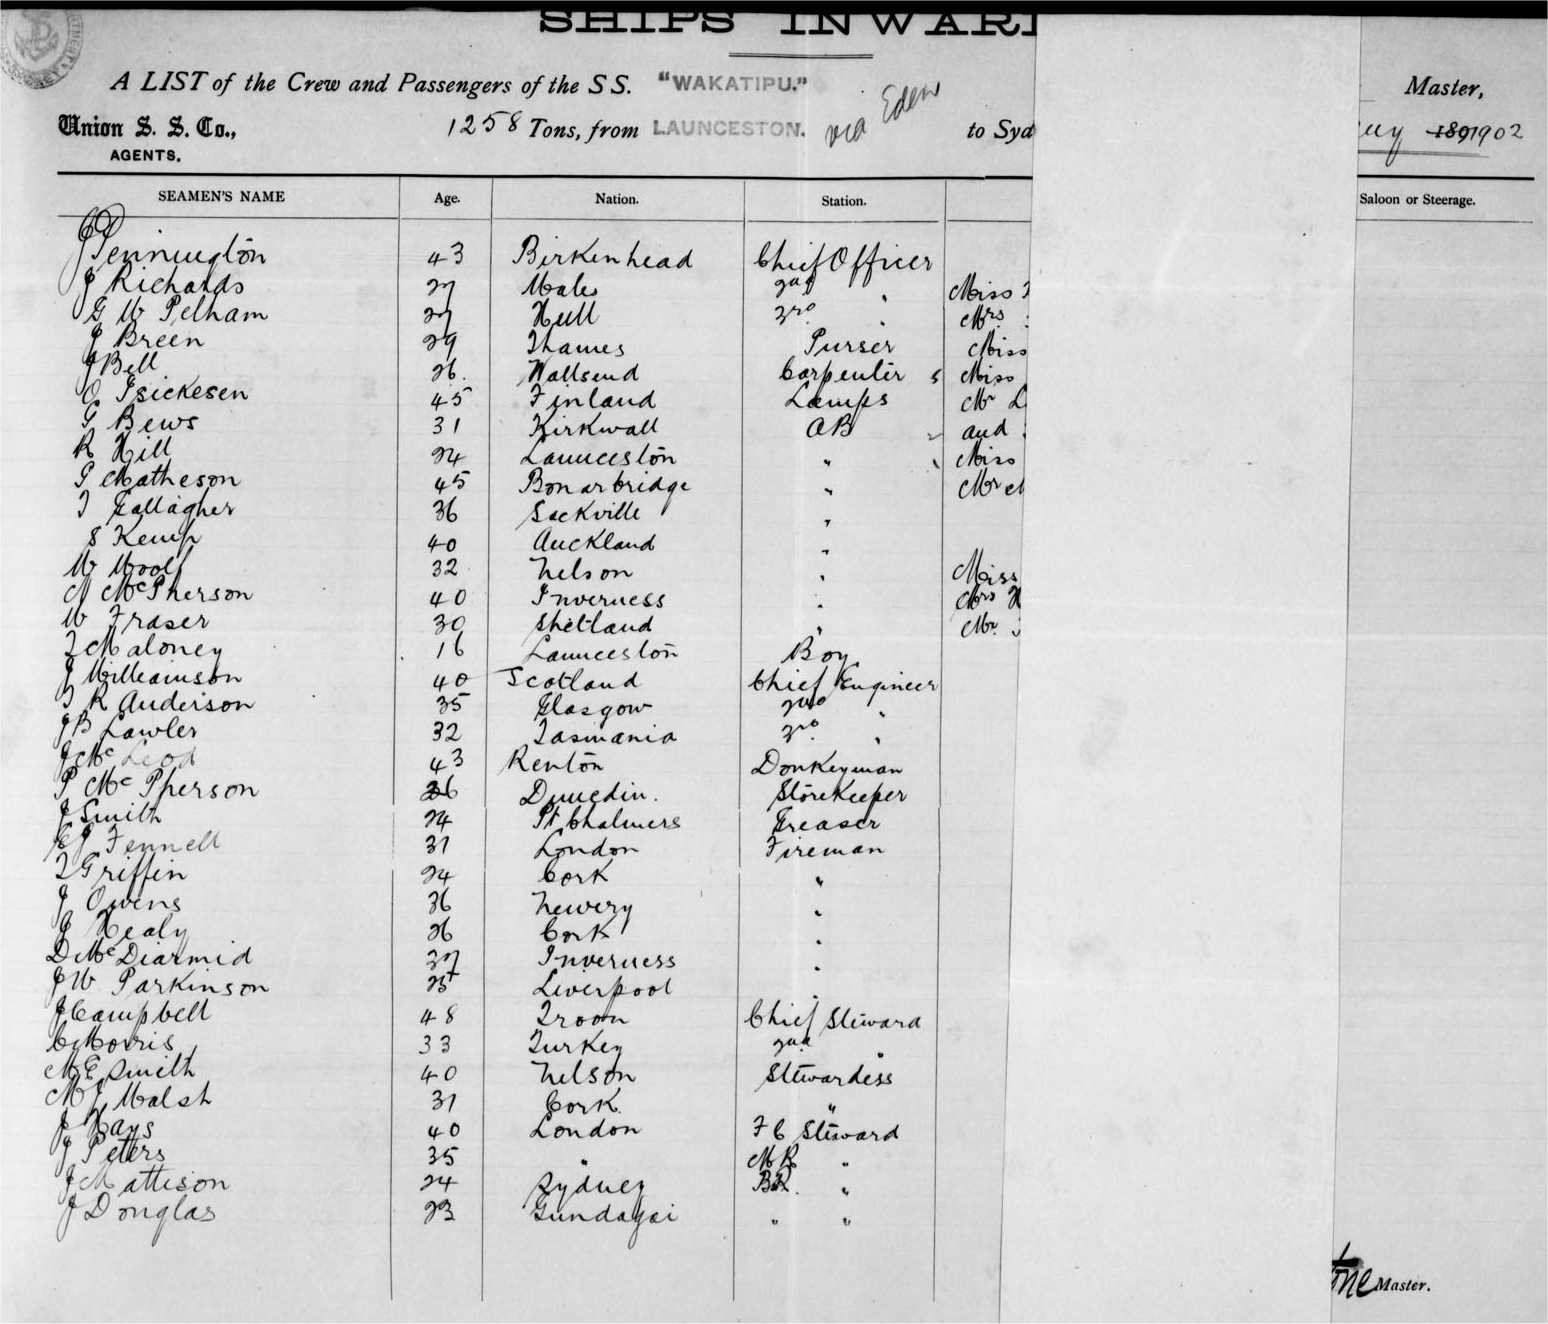 SHIPS INWAR
A LIST of the Crew and Passengers of the SS. "WAKATIPU." via Eden Master,
Union S. S. Co., 1258 Tons, from LAUNCESTON. to Syd 1891902
AGENTS.
SEAMEN'S NAME Age. Nation. Station. Saloon or Steerage.
J Pennington 43 Birkenhead Chief Officer
J Richards 27 Wales 2nd " Miss
G W Pelham 27 Hull 3rd " Mrs
J Breen 29 Thames Purser Miss
J Bell 26 Wallsend Carpenter Miss
O Isickesen 45 Finland Lamps Mr L
G Bews 31 Kirkwall AB and
R Hill 24 Launceston " Miss
G Matheson 45 Bonarbridge " Mr
T Gallagher 36 Sackville "
S Kemp 40 Auckland "
W Woolf 32 Nelson " Miss
N McPherson 40 Inverness " Mrs H
W Fraser 30 Shetland " Mr
T Maloney 16 Launceston Boy
J Williamson 40 Scotland Chief Engineer
T R Anderson 35 Glasgow 2nd "
J B Lawler 32 Tasmania 3rd "
J McLeod 43 Renton Donkeyman
P McPherson 36 Dunedin. Storekeeper
J Smith 24 Pt Chalmers Greaser
E J Fennell 31 London Fireman
T Griffin 24 Cork "
J Owens 36 Newery "
J Healy 26 Cork "
D McDiarmid 37 Inverness "
J W Parkinson 25 Liverpool "
J Campbell 48 Troon Chief Steward
C Morris 33 Turkey 2nd "
M E Smith 40 Nelson Stewardess
M J Walsh 31 Cork "
J Hays 40 London F C Steward
J Peters 35 " M R "
J Mattison 24 Sydney B R. "
J Douglas 23 Gundagai " "
Master.